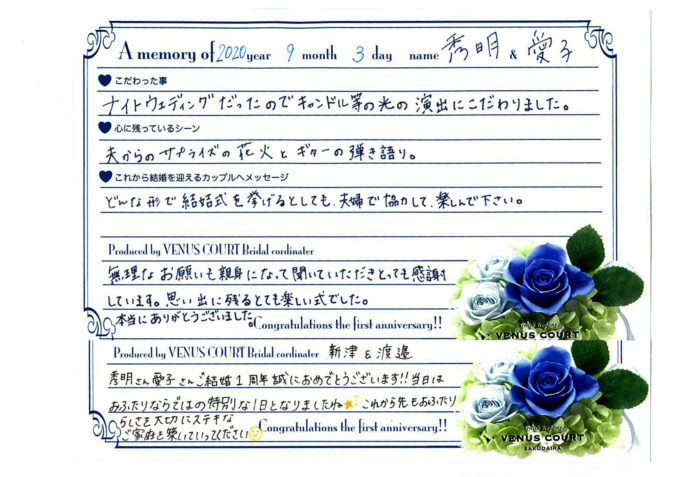 A memory of 2020 year 9 month 3 day name 秀明 & 愛子
こだわった事
ナイトウェディングだったのでキャンドル等の光の演出にこだわりました。
心に残っているシーン
夫からのサプライズの花火とギターの弾き語り。
これから結婚を迎えるカップルへメッセージ
どんな形で結婚式を挙げるとしても、夫婦で協力して、楽しんで下さい。
Produced by VENUS COURT Bridal cordinater
無理なお願いも親身になって聞いていただきとっても感謝
しています。思い出に残るとても楽しい式でした。
本当にありがとうございました。
Congratulations the first anniversary!!
VENUS COURT
Produced by VENUS COURT Bridal cordinater 新津 & 渡邉
秀明さん愛子さんご結婚1周年誠におめでとうございます!!当日は
おふたりならではの特別な1日となりましたね これから先もおふたり
らしさを大切にステキな
ご家庭を築いていってください
Congratulations the first anniversary!!
VENUS COURT
SAKUDAIRA